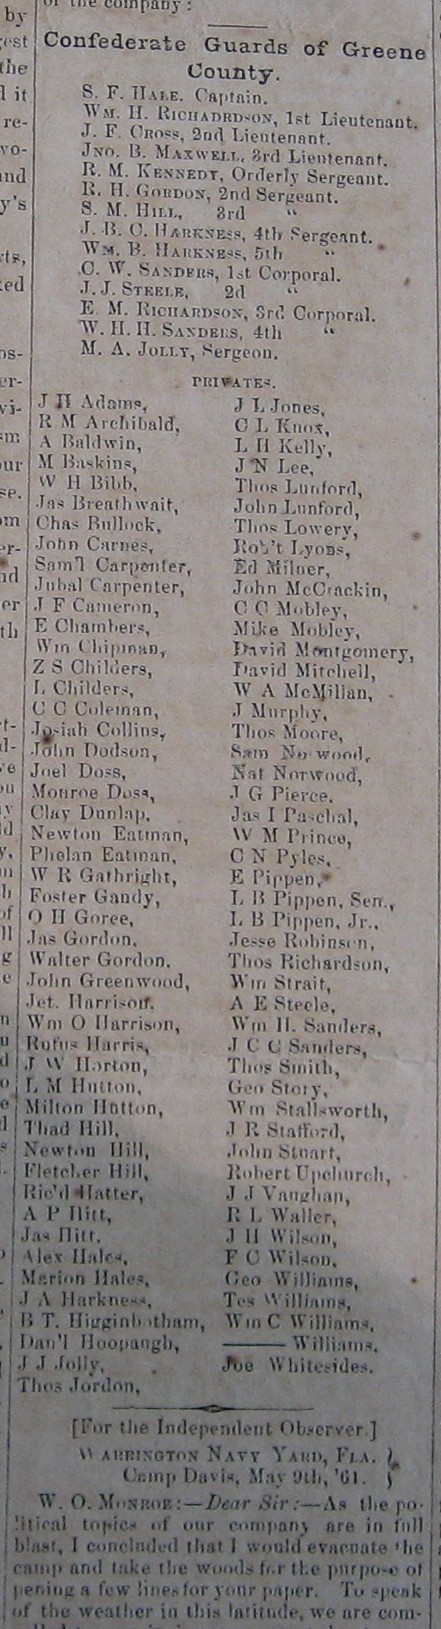 of the company:
Confederate Guards of Greene
County.
S. F. HALE. Captain.
WM. H. RICHADRDSON, 1st Lieutenant.
J. F. CROSS, 2nd Lieutenant.
JNO. B. MAXWELL, 3rd Lieutenant.
R. M. KENNEDY, Orderly Sergeant.
R. H. GORDON, 2nd Sergeant.
S. M. HILL, 3rd "
J. B. C. HARKNESS, 4th Sergeant.
WM. B. HARKNESS, 5th "
C. W. SANDERS, 1st Corporal.
J. J. STEELE, 2d "
E. M. RICHARDSON, 3rd Corporal.
W. H. H. SANDERS, 4th "
M. A. JOLLY, Sergeon.
PRIVATES.
J H Adams,
R M Archibald,
A Baldwin,
M Baskins,
W H Bibb,
Jas Breathwait,
Chas Bullock,
John Carnes,
Sam'l Carpenter,
Jubal Carpenter,
J F Cameron,
E Chambers,
Wm Chipman,
Z S Childers,
L Childers,
C C Coleman,
Josiah Collins,
John Dodson,
Joel Doss,
Monroe Doss,
Clay Dunlap,
Newton Eatman,
Phelan Eatman,
W R Gathright,
Foster Gandy,
O H Goree,
Jas Gordon,
Walter Gordon.
John Greenwood,
Jet. Harrison,
Wm O Harrison,
Rufus Harris,
J W Horton,
L M Hutton,
Milton Hutton,
Thad Hill,
Newton Hill,
Fletcher Hill,
Ric'd Hatter,
A P Hitt,
Jas Hitt,
Alex Hales,
Marion Hales,
J A Harkness,
B T. Higginbotham,
Dan'l Hoopaugh,
J J Jolly,
Thos Jordon,
J L Jones,
C L Knox,
L H Kelly,
J N Lee,
Thos Lunford,
John Lunford,
Thos Lowery,
Rob't Lyons,
Ed Milner,
John McCrackin,
C C Mobley,
Mike Mobley,
David Montgomery,
David Mitchell,
W A McMillan,
J Murphy,
Thos Moore,
Sam No wood,
Nat Norwood,
J G Pierce.
Jas I Paschal,
W M Prince,
C N Pyles,
E Pippen,
L B Pippen, Sen.,
L B Pippen, Jr.,
Jesse Robinson,
Thos Richardson,
Wm Strait,
A E Steele,
Wm H. Sanders,
J C C Sanders,
Thos Smith,
Geo Story,
Wm Stallsworth,
J R Stafford,
John Stuart,
Robert Upchurch,
J J Vaughan,
R L Waller,
J H Wilson,
F C Wilson,
Geo Williams,
Tes Williams,
Wm C Williams,
—— Williams,
Joe Whitesides.
[For the Independent Observer.]
WARRINGTON NAVY YARD, FLA. }
Camp Davis, May 9th, '61. }
W. O. MONROE:—Dear Sir:—As the po-
litical topics of our company are in full
blast, I concluded that I would evacuate the
camp and take the woods for the purpose of
pening a few lines for your paper. To speak
of the weather in this latitude, we are com-